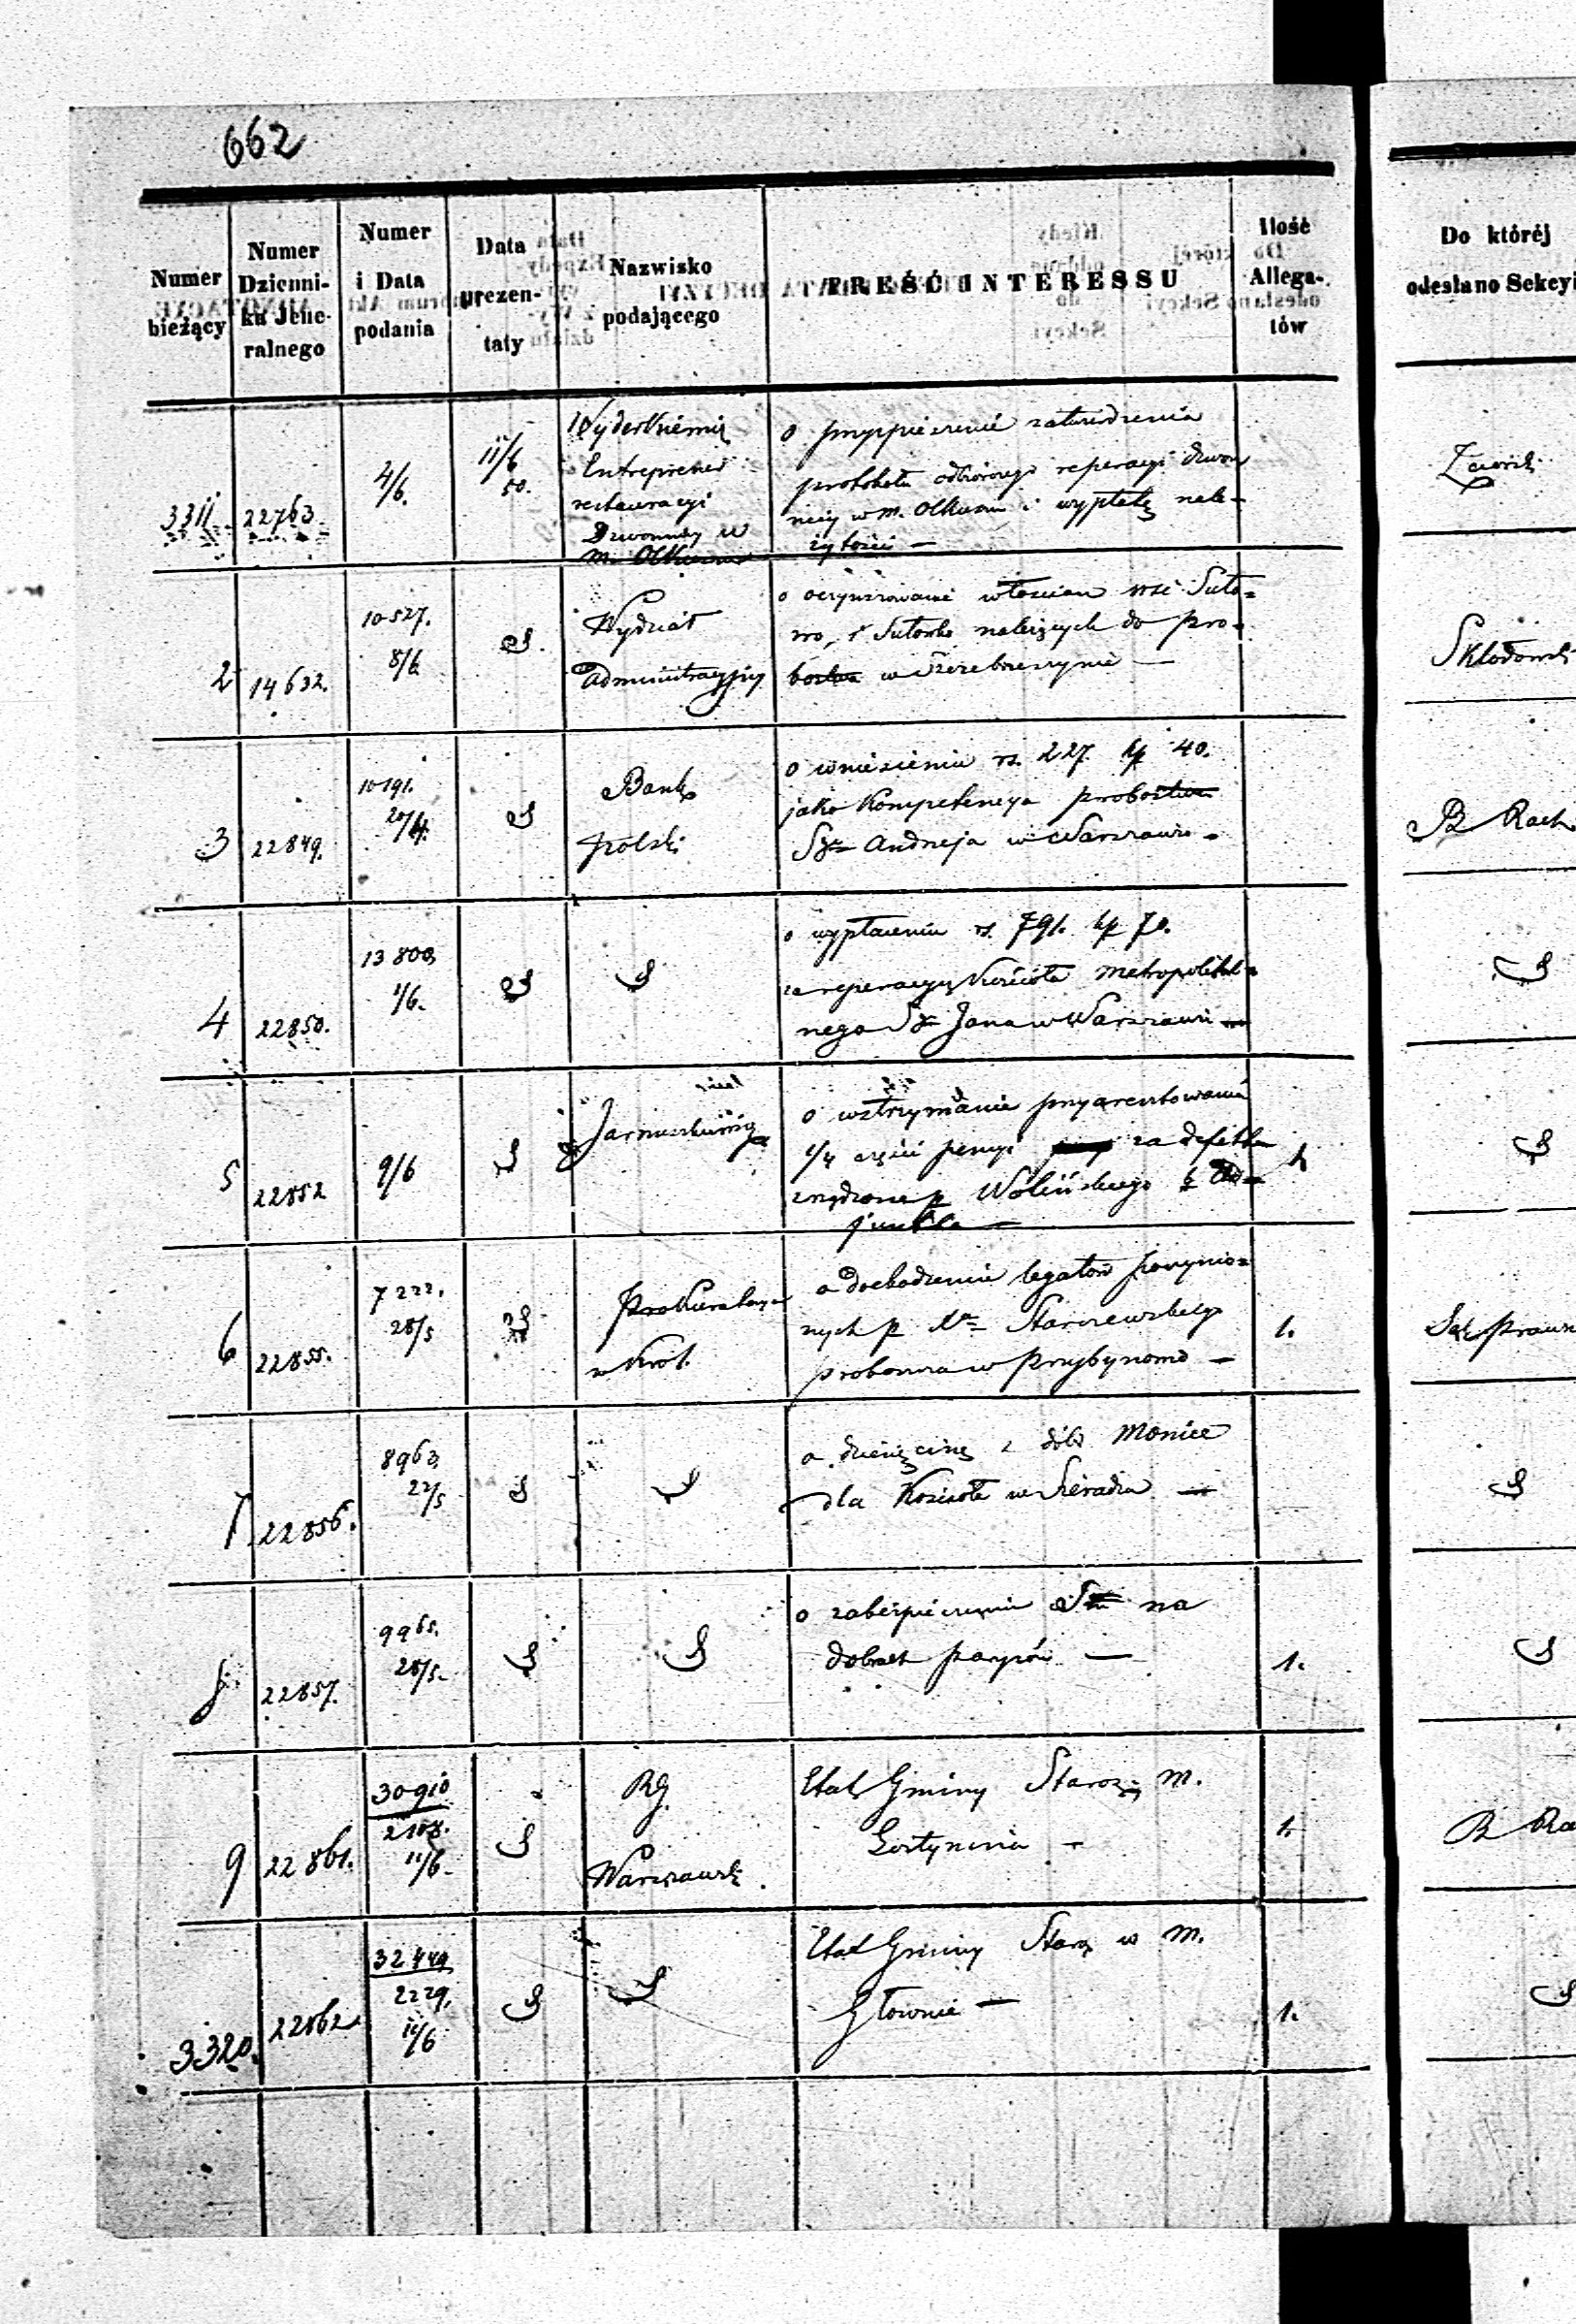 662
Numer bieżący
Numer Dzienni- ka Jene- ralnego
Numer i Data podania
Data prezen- taty
Nazwisko podającego
TREŚĆ INTERESSU
Ilość Allega- tów
Do któréj odesłano Sekcyi
3311 22763 4/6. 11/6 50.
Entreprener
restauracyi
Dzwonnicy w
m. Olkuszu
o przyspieszenie zatwierdzenia
protokołu odbiorczego reperacyi dzwon
nicy w m. Olkuszu i wypłatę nale-
żytości —
2 14632. 10527. 8/6
Wydział
Administracyjny
o oczynszowanie włościan wsi Suło-
wo, i Sułowko należących do pro-
bostwa w Szczebrzeszynie —
Skłodowski
3 22849. 10191. 20/4.
Bank
Polski
o wniesieniu rs. 227. kp 40.
jako kompetencya probostwa
Sgo Andrzeja w Warszawie -
4 22850. 13800. 1/6.
o wypłaceniu rs. 791. kp 70.
za reperacyę kościoła metropolital-
nego Sgo Jana w Warszawie —
5 22852 9/6
o wstrzymanie przyaresztowania
1/4 części pensyi za defekta
zrządzone p Wolińskiego b Ad-
junkta —
1
6 22855. 7222. 28/5
Prokuratorya
w Król.
o dochodzeniu legatów poczynio-
nych p Xa Starczewskiego
proboszcza w Przybynowie —
1.
7 22856. 8963. 22/5
o dziesięcinę z dóbr Monice
dla Kościoła w Sieradzu —
8 22857. 9965. 28/5.
o zabezpieczenie na
dobrach Parysów —
1.
9 22861. 30910 2108. 11/6.
RG.
Warszawski.
Etat Gminy Staroz. m.
Gostynina -
1.
3320. 22862 32449 2229. 11/6
Etat Gminy Staroz w m.
Głownie —
1.